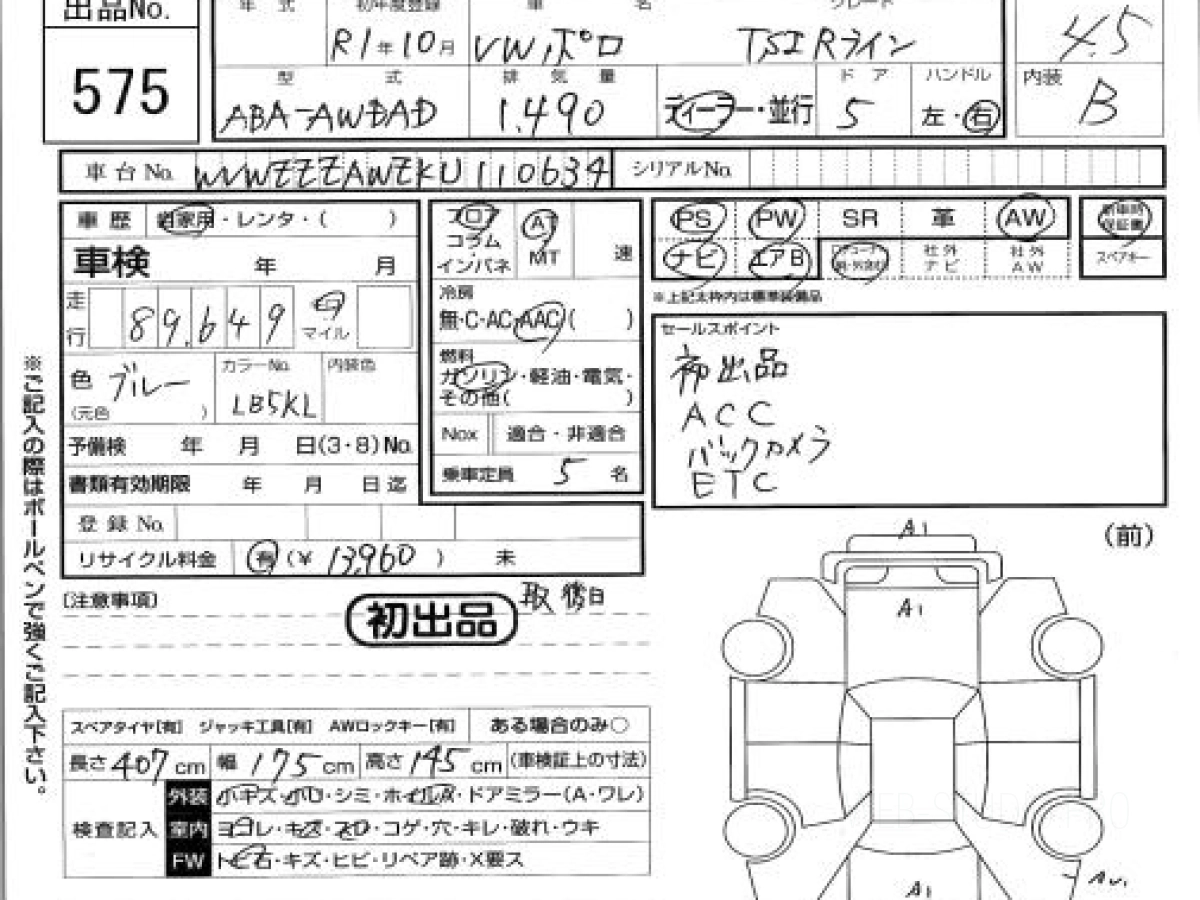 出品No. 年式 初年度登録 車名 グレード
R1年10月 VW ポロ TSI Rライン 4.5
575 型式 排気量 ドア ハンドル 内装
ABA-AWDAD 1.490 ディーラー・並行 5 左・右 B
車台No. WVWZZZAWZKU110634 シリアルNo.
車歴 自家用・レンタ・( )
車検 年 月
走行 89,649 マイル
色 ブルー (元色 ) カラーNo. LB5KL 内装色
予備検 年 月 日(3・8)No.
書類有効期限 年 月 日迄
登録No.
リサイクル料金 有 (¥ 13,960 ) 未
フロア コラム インパネ AT MT 速
冷房
無・C・AC・AAC( )
燃料
ガソリン・軽油・電気・
その他( )
Nox 適合・非適合
乗車定員 5 名
PS PW SR 革 AW 新車時保証書
ナビ エアB 社外ナビ 社外AW スペアキー
※上記太枠内は標準装備品
セールスポイント
初出品
ACC
バックカメラ
ETC
[注意事項] 初出品
※ご記入の際はボールペンで強くご記入下さい。
スペアタイヤ[有] ジャッキ工具[有] AWロックキー[有] ある場合のみ○
長さ407cm 幅175cm 高さ145cm (車検証上の寸法)
検査記入
外装 小キズ・小凹・シミ・ホイルA・ドアミラー(A・ワレ)
室内 ヨゴレ・キズ・スレ・コゲ・穴・キレ・破れ・ウキ
FW トビ石・キズ・ヒビ・リペア跡・X要ス
(前)
A1
A1
A1